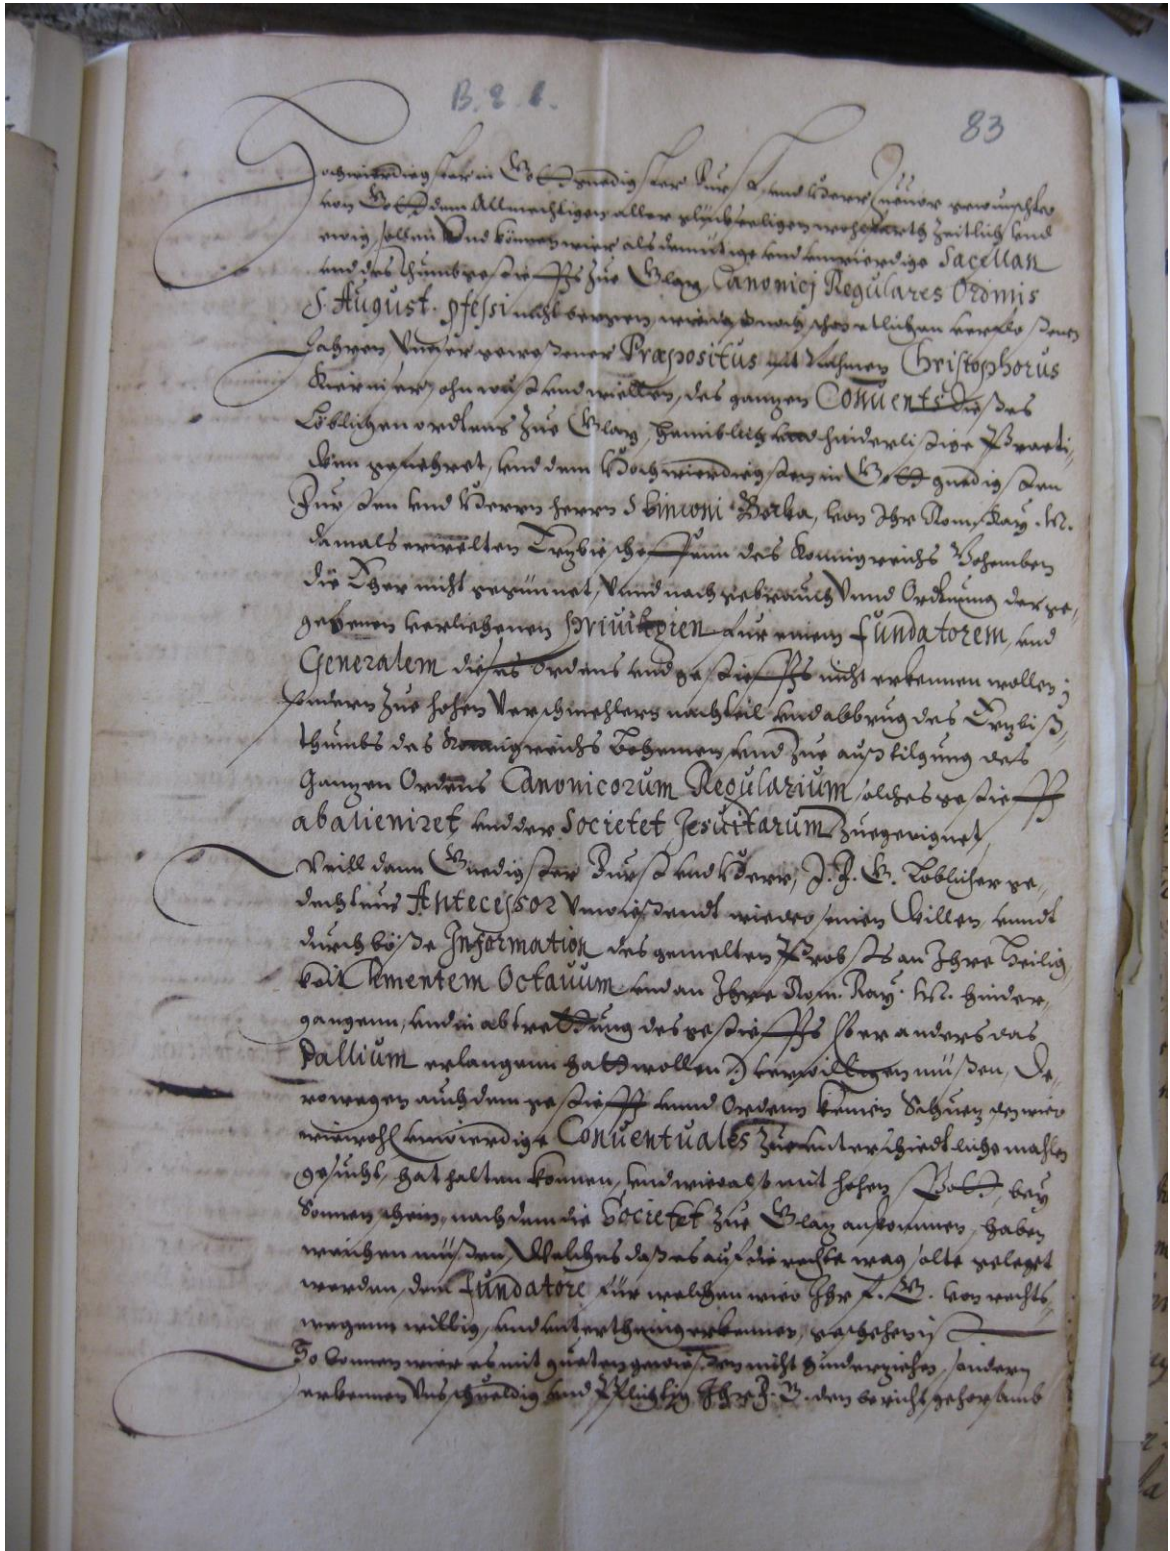 B. 2. 1.
83
Hochwierdigster in Gott gnedigster Fürst und Herr, neuor gewunschter
von Gott dem Allmechtigen aller glückseeligen wohlfarth zeitlich und
ewig, sollen Und können wier als demütige und unwierdige Sacellan
und des thumbgestieffts zue Glaz Canonici Regulares Ordinis
S. August. pfessi nicht bergen, verfloßenen
Jahren Unser geweßener Præpositus mit Nahmen Christophorus
ohn wust und wiellen, des ganzen Convents dießes
Löblichen ordens zue Glaz, heimblich und hinderlistige Practi-
ken gefehret, und dem Hochwierdigsten in Gott gnedigsten
Fürsten und Herrn herrn Sbinconi Berka, von Ihr Röm. Kay. M.
damals erwelten Erzbieschoffenn des Konnigreichs Bohemben
die Eher nicht gegünnet, Unnd nach gebrauch Unnd Ordnung der ge-
gebenen verliehenen Privilegien für einem fundatorem, und
Generalem dieses Ordens und gestieffts nicht erkennen wollen;
sondern zue hohen Verschmehlern nachteil und abbrug des Erzbiß-
thumbs des Konnigreichs Bohemen, und zue außtilgung des
Ganzen Ordens Canonicorum Regularium solches gestiefft
abalieniret und der Societet Jesuitarum zuegeeignet,
Weill dann Gnedigster Fürst und Herr, I. F. G. Loblicher ge-
dechtnus Antecessor Unwießendt wieder seinen Willen, unndt
durch böße Information des gemelten Probsts an Ihre Heilig-
keit Clementem Octavum und an Ihre Röm. Kay. M. hinder-
gangenn, und in abtrettung des gestieffts (: er anders das
Pallium erlangenn hatt wollen :) verwilligen müßen, De-
rowegen auch dem gestiefft unnd Ordenn keinen Schuez den wier
wiewohl unwierdige Conventuales zue unterschiedtliche mahlen
gesucht, hat halten können, und wier also mit hohen Spott, bey
Sonnenschein, nach dem die Societet zue Glaz ankommen, haben
weichen müßen, Welches daß es auf die rechte wag solte geleget
werden, dem fundatore für welchen wier Ihr F. G. von rechts-
wegenn willig, und unterthenig erkennen, geschehen ist
So können wier es mit gueten gewießen nicht hinderziehen, sondern
erkennen Uns schueldig und Pflichtig Ihr F. G. den bericht gehorsamb